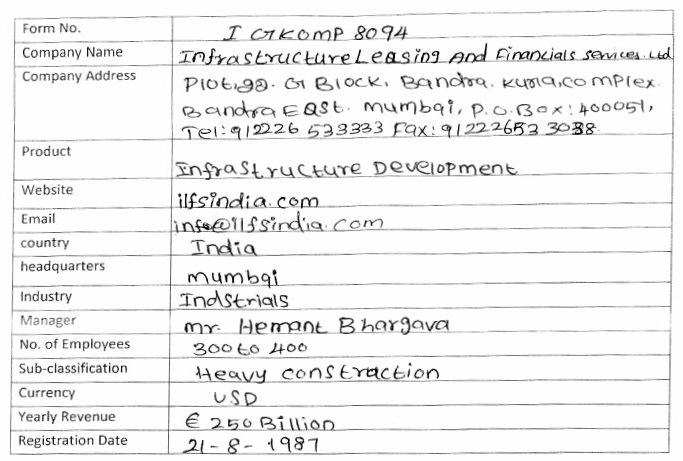 Form No. I GKOMP 8094
Company Name Infrastructure Leasing And Financials services. Ltd
Company Address Plot,22. G Block, Bandra. kurla,complex.
Bandra East. mumbai, P.O.Box: 400051,
Tel: 912226 533333 Fax: 9122265 3 3038
Product Infrastructure Development
Website ilfsindia.com
Email info@ilfsindia.com
country India
headquarters mumbai
Industry Indstrials
Manager mr. Hemant Bhargava
No. of Employees 300 to 400
Sub-classification Heavy constraction
Currency USD
Yearly Revenue € 250 Billion
Registration Date 21-8-1987